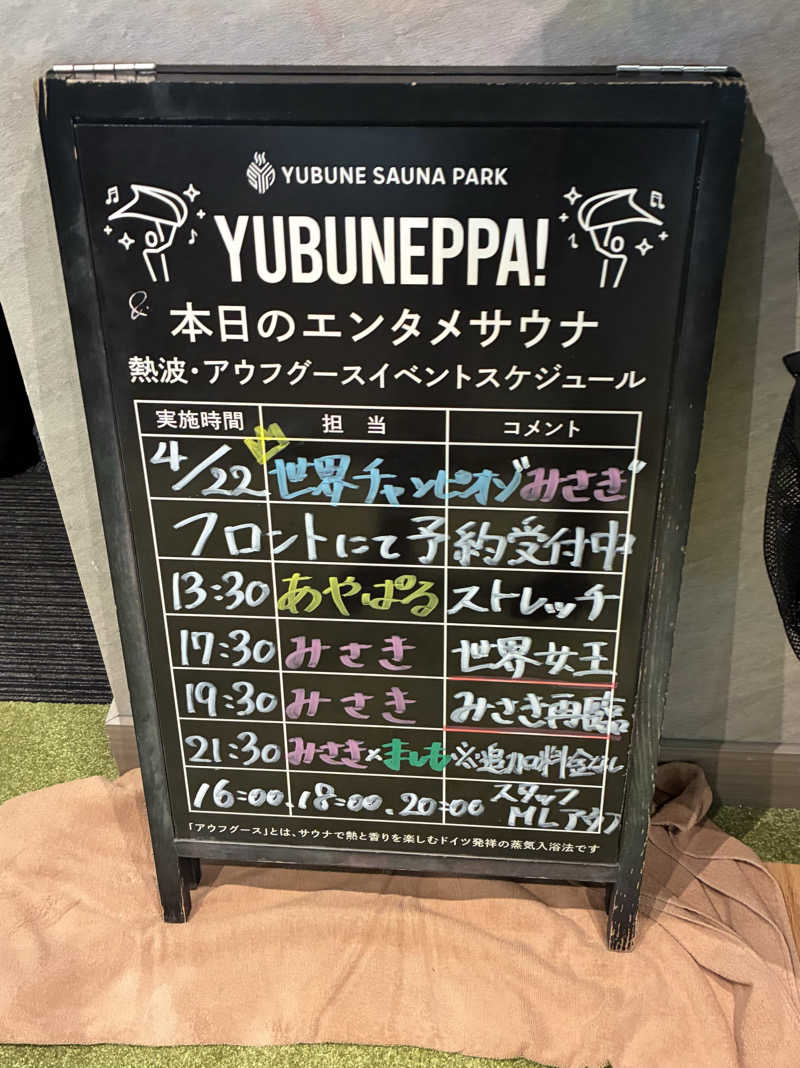 YUBUNE SAUNA PARK
YUBUNEPPA!
&
本日のエンタメサウナ
熱波・アウフグースイベントスケジュール
実施時間 担当 コメント
4/22 世界チャンピオン"みさき"
フロントにて予約受付中
13:30 あやぱる ストレッチ
17:30 みさき 世界女王
19:30 みさき みさき再臨
21:30 みさき×ましも ※追加料金なし
16:00、18:00、20:00 スタッフ
MLアウフ
「アウフグース」とは、サウナで熱と香りを楽しむドイツ発祥の蒸気入浴法です